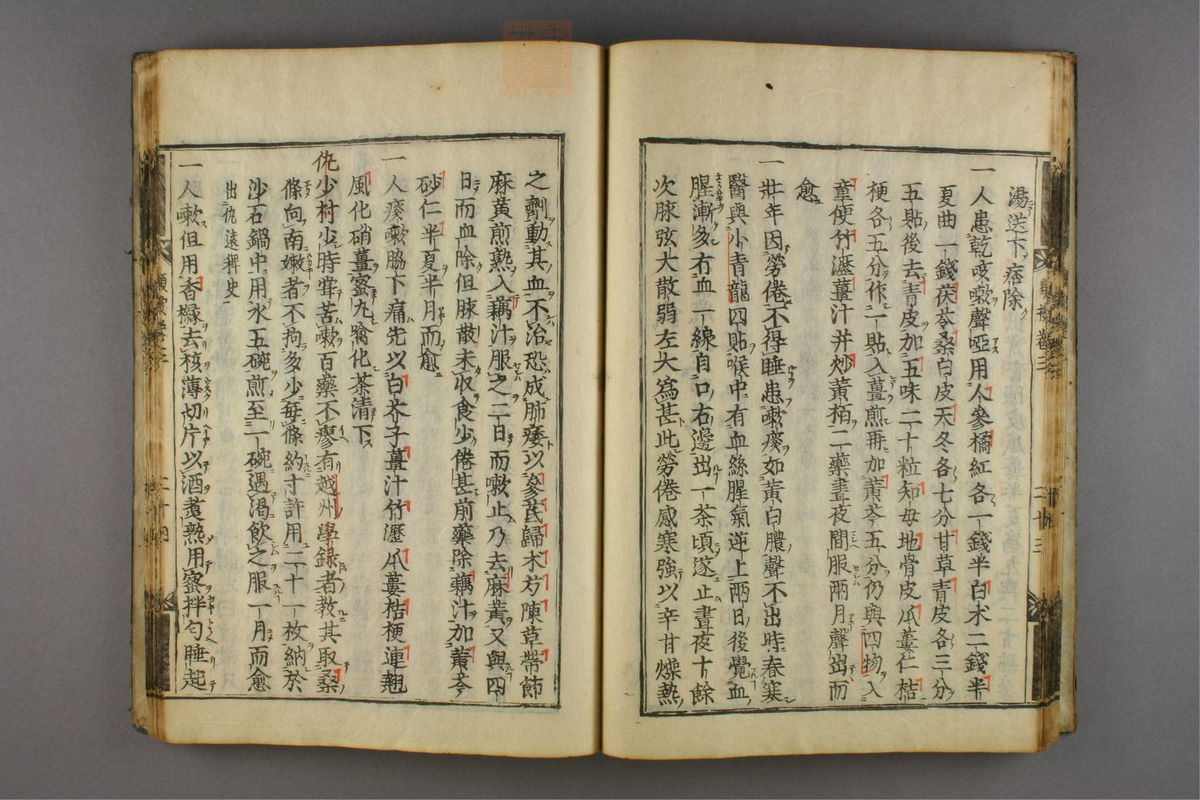 湯送下痞除
一人患乾咳嗽聲啞用人參橘紅各一錢半白朮二錢半
夏曲一錢茯苓桑白皮天冬各七分甘草青皮各三分
五貼後去青皮加五味二十粒知母地骨皮瓜蔞仁桔
梗各五分作一貼入薑煎再加黃芩五分仍與四物入
童便竹瀝薑汁并炒黃栢二藥晝夜間服兩月聲出而
愈
一壯年因勞倦不得睡患嗽痰如黃白膿聲不出時春寒
醫與小青龍四貼喉中有血絲腥氣逆上兩日後覺血
腥漸多有血一線自口右邊出一茶頃遂止晝夜十餘
次脉弦大散弱左大為甚此勞倦感寒強以辛甘燥熱
之劑動其血不治恐成肺痿以參芪歸朮芍陳草帶節
麻黃煎熟入藕汁服之二日而嗽止乃去麻黃又與四
日而血除但脉散未收食少倦甚前藥除藕汁加黃芩
砂仁半夏半月而愈
一人痰嗽脇下痛先以白芥子薑汁竹瀝瓜蔞桔梗連翹
風化硝薑蜜丸噙化茶清下
仇少村少時甞苦嗽百藥不療有越州學録者教其取桑
條向南嫩者不拘多少每條約寸許用二十一枚納於
沙石鍋中用水五碗煎至一碗遇渴飲之服一月而愈
出仇遠稗史
一人嗽但用香櫞去核薄切片以酒煮熟用蜜拌勻睡起
二十三
二十四